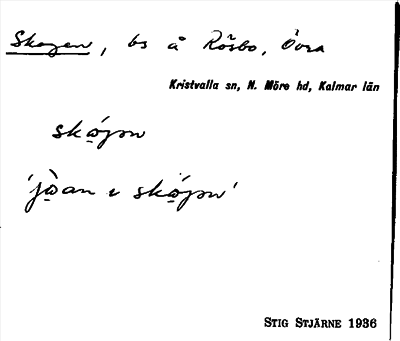 Skogen, bs å Rösbo, Övra
Kristvalla sn, N. Möre hd, Kalmar län
skǫ́gən
'jǫ̀an ı skǫ́gən'
STIG STJÄRNE 1936